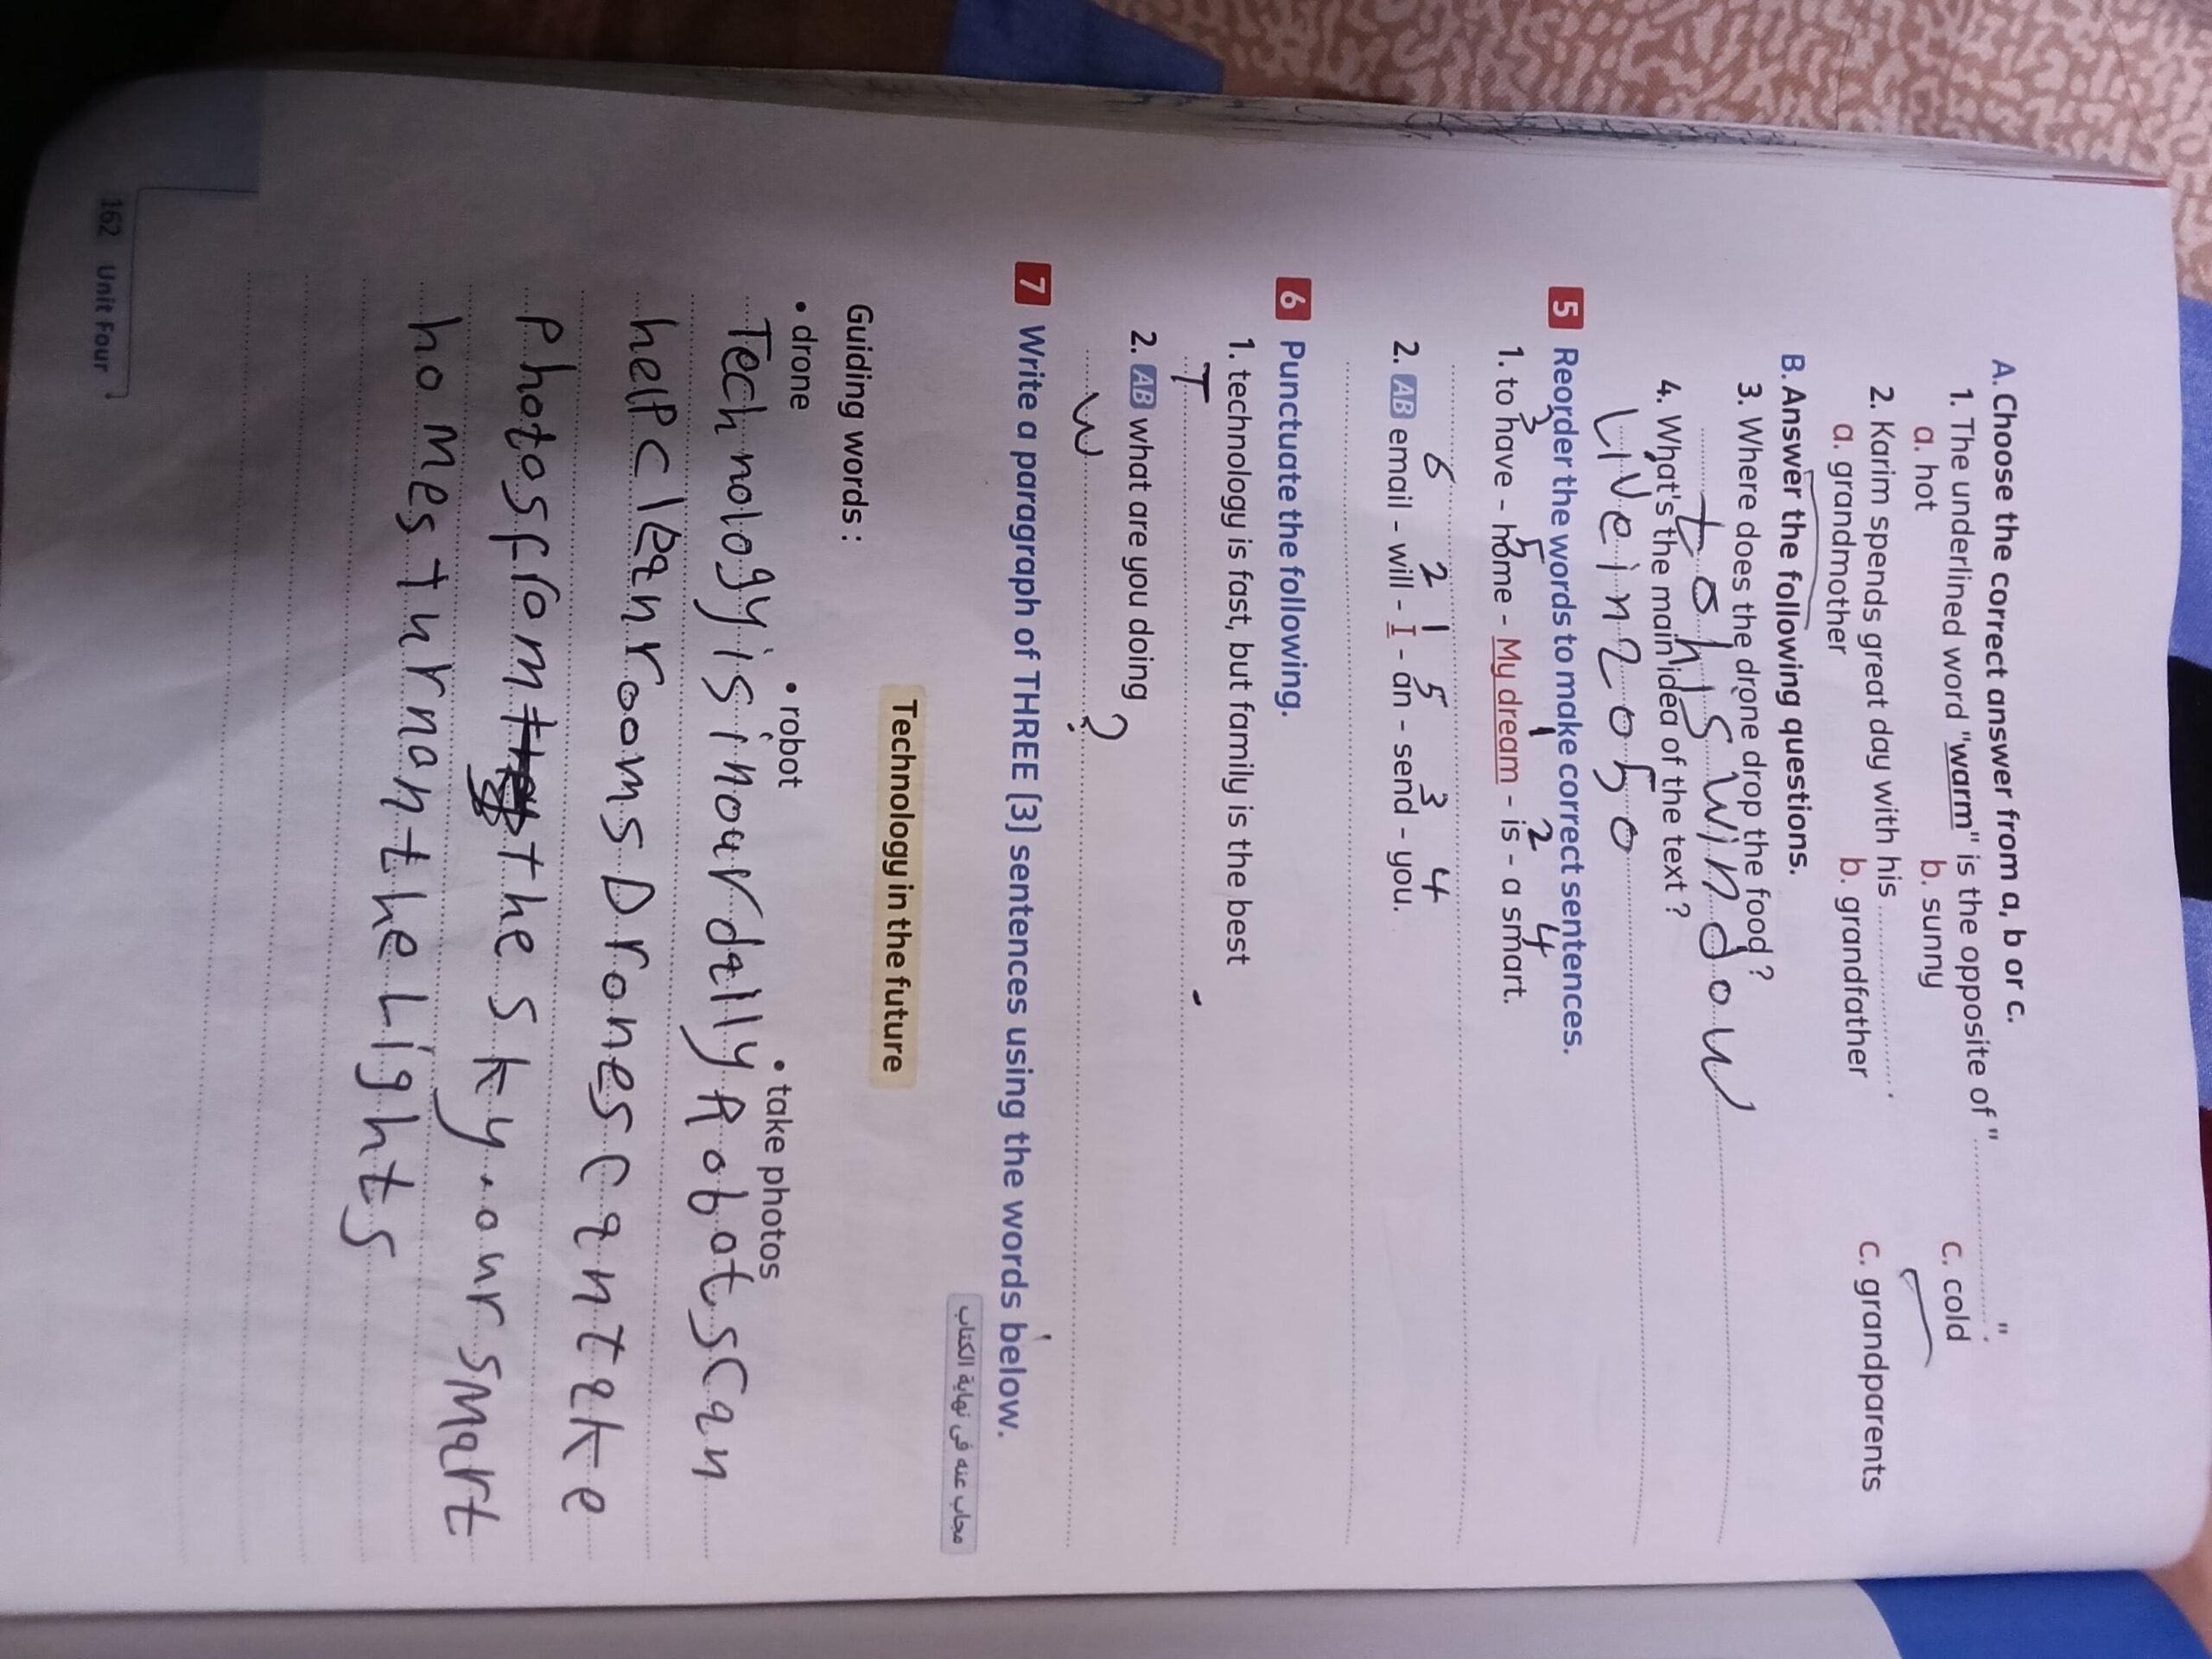 A. Choose the correct answer from a, b or c.
1. The underlined word "warm" is the opposite of " .................... ".
a. hot b. sunny c. cold
2. Karim spends great day with his .................... .
a. grandmother b. grandfather c. grandparents
B. Answer the following questions.
3. Where does the drone drop the food?
to his window
4. What's the main idea of the text?
Live in 2050
5 Reorder the words to make correct sentences.
3 5 1 2 4
1. to have - home - My dream - is - a smart.
6 2 1 5 3 4
2. AB email - will - I - an - send - you.
6 Punctuate the following.
1. technology is fast, but family is the best
T .
2. AB what are you doing
W ?
7 Write a paragraph of THREE (3) sentences using the words below.
مجاب عنه في نهاية الكتاب
Technology in the future
Guiding words :
• drone • robot • take photos
Technology is in our daily Robots can
help clean rooms Drones can take
photos from the sky. our smart
homes turn on the Lights
162 Unit Four